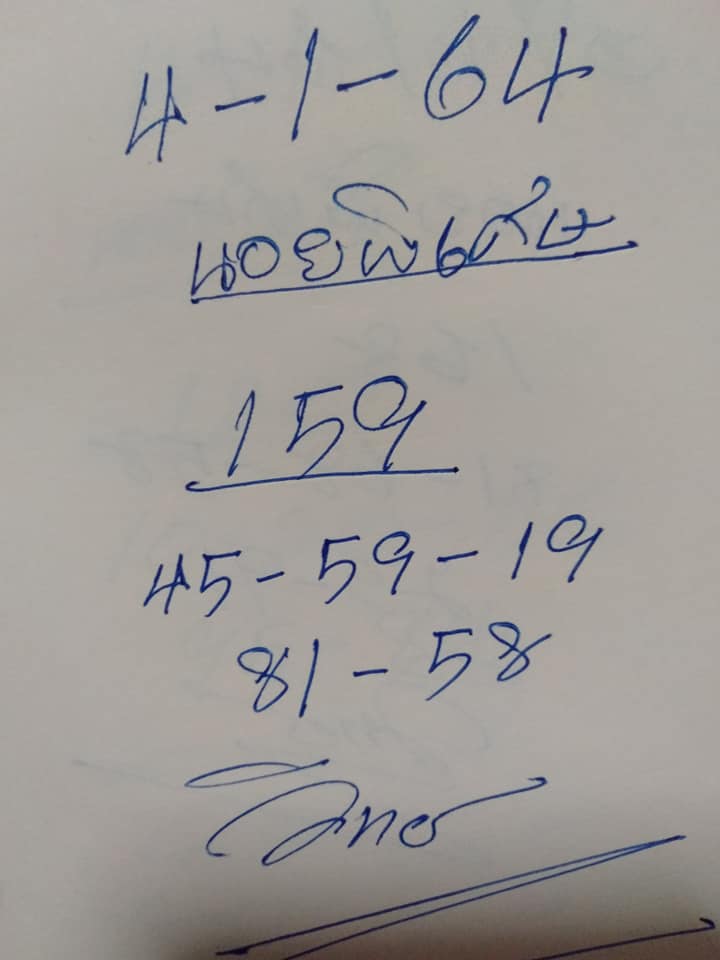 4-1-64
นอยพิเศษ
159
45-59-19
81-58